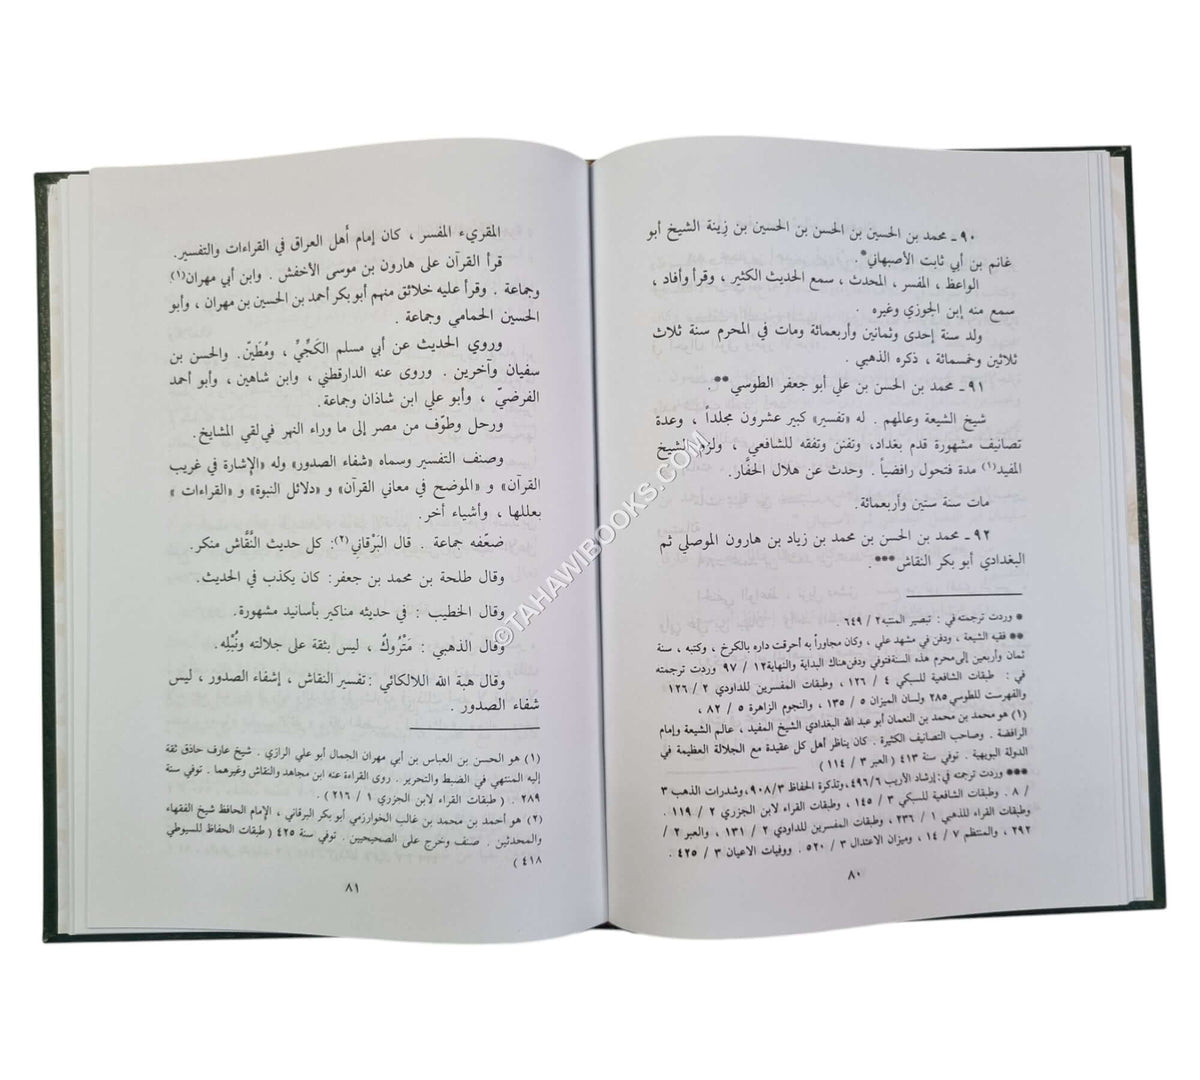 ٩٠ ـ محمد بن الحسين بن الحسن بن الحسين بن زِينة الشيخ أبو
غانم بن أبي ثابت الأصبهاني* .
الواعظ ، المفسر ، المحدث ، سمع الحديث الكثير ، وقرأ وأفاد ،
سمع منه إبن الجوزي وغيره
ولد سنة إحدى وثمانين وأربعمائة ومات في المحرم سنة ثلاث
ثلاثين وخمسمائة ، ذكره الذهبي .
٩١ ـ محمد بن الحسن بن علي أبو جعفر الطوسي** .
شيخ الشيعة وعالمهم . له «تفسير» كبير عشرون مجلداً ، وعدة
تصانيف مشهورة قدم بغداد، وتفنن وتفقه للشافعي ، ولزم الشيخ
المفيد(١) مدة فتحول رافضياً . وحدث عن هلال الحفَّار.
مات سنة ستين وأربعمائة.
٩٢ ـ محمد بن الحسن بن محمد بن زياد بن هارون الموصلي ثم
البغدادي أبو بكر النقاش*** .
* وردت ترجمته في : تبصير المنتبه ٢ / ٦٤٩ .
** فقيه الشيعة ، ودفن في مشهد علي ، وكان مجاوراً به أحرقت داره بالكرخ ، وكتبه ، سنة
ثمان وأربعين إلى محرم هذه السنة فتوفي ودفن هناك البداية والنهاية ١٢ / ٩٧ وردت ترجمته
في : طبقات الشافعية للسبكي ٤ / ١٢٦ ، وطبقات المفسرين للداودي ٢ / ١٢٦
والفهرست للطوسي ٢٨٥ ولسان الميزان ٥ / ١٣٥ ، والنجوم الزاهرة ٥ / ٨٢ ،
(١) هو محمد بن محمد بن النعمان أبو عبد الله البغدادي الشيخ المفيد ، عالم الشيعة وإمام
الرافضة . وصاحب التصانيف الكثيرة . كان يناظر أهل كل عقيدة مع الجلالة العظيمة في
الدولة البويهية . توفي سنة ٤١٣ ( العبر ٣ / ١١٤ )
*** وردت ترجمته في : إرشاد الأريب ٤٩٦/٦، وتذكرة الحفاظ ٩٠٨/٣، وشذرات الذهب ٣
/ ٨ . وطبقات الشافعية للسبكي ٣ / ١٤٥ ، وطبقات القراء لابن الجزري ٢ / ١١٩ .
وطبقات القراء للذهبي ١ / ٢٣٦ ، وطبقات المفسرين للداودي ٢ / ١٣١ ، والعبر ٢ /
٢٩٢ ، والمنتظم ٧ / ١٤ ، وميزان الاعتدال ٣ / ٥٢٠ . ووفيات الاعيان ٣ / ٤٢٥ .
٨٠
المقريء المفسر ، كان إمام أهل العراق في القراءات والتفسير.
قرأ القرآن على هارون بن موسى الأخفش . وابن أبي مهران(١)
وجماعة . وقرأ عليه خلائق منهم أبو بكر أحمد بن الحسين بن مهران ، وأبو
الحسين الحمامي وجماعة .
وروي الحديث عن أبي مسلم الكَجِّيِّ ، ومُطَيّن. والحسن بن
سفيان وآخرين . وروى عنه الدارقطني ، وابن شاهين ، وأبو أحمد
الفرضيّ ، وأبو علي ابن شاذان وجماعة.
ورحل وطوّف من مصر إلى ما وراء النهر في لقي المشايخ.
وصنف التفسير وسماه «شفاء الصدور» وله «الإشارة في غريب
القرآن» و «الموضح في معاني القرآن» و «دلائل النبوة» و «القراءات »
بعللها ، وأشياء أخر.
ضعّفه جماعة . قال البَرْقاني(٢): كل حديث النَّقَّاش منكر.
وقال طلحة بن محمد بن جعفر: كان يكذب في الحديث.
وقال الخطيب : في حديثه مناكير بأسانيد مشهورة.
وقال الذهبي : مَتْروكٌ ، ليس بثقة على جلالته ونُبْلِه.
وقال هبة الله اللالكائي : تفسير النقاش ، إشفاء الصدور ، ليس
شفاء الصدور .
(١) هو الحسن بن العباس بن أبي مهران الجمال أبو علي الرازي . شيخ عارف حاذق ثقة
إليه المنتهي في الضبط والتحرير . روى القراءة عنه ابن مجاهد والنقاش وغيرهما . توفي سنة
٢٨٩ . ( طبقات القراء لابن الجزري ١ / ٢١٦ )
(٢) هو أحمد بن محمد بن غالب الخوارزمي أبو بكر البرقاني ، الإمام الحافظ شيخ الفقهاء
والمحدثين . صنف وخرج على الصحيحين . توفي سنة ٤٢٥ ( طبقات الحفاظ للسيوطي
٤١٨ )
٨١
©TAHAWIBOOKS.COM